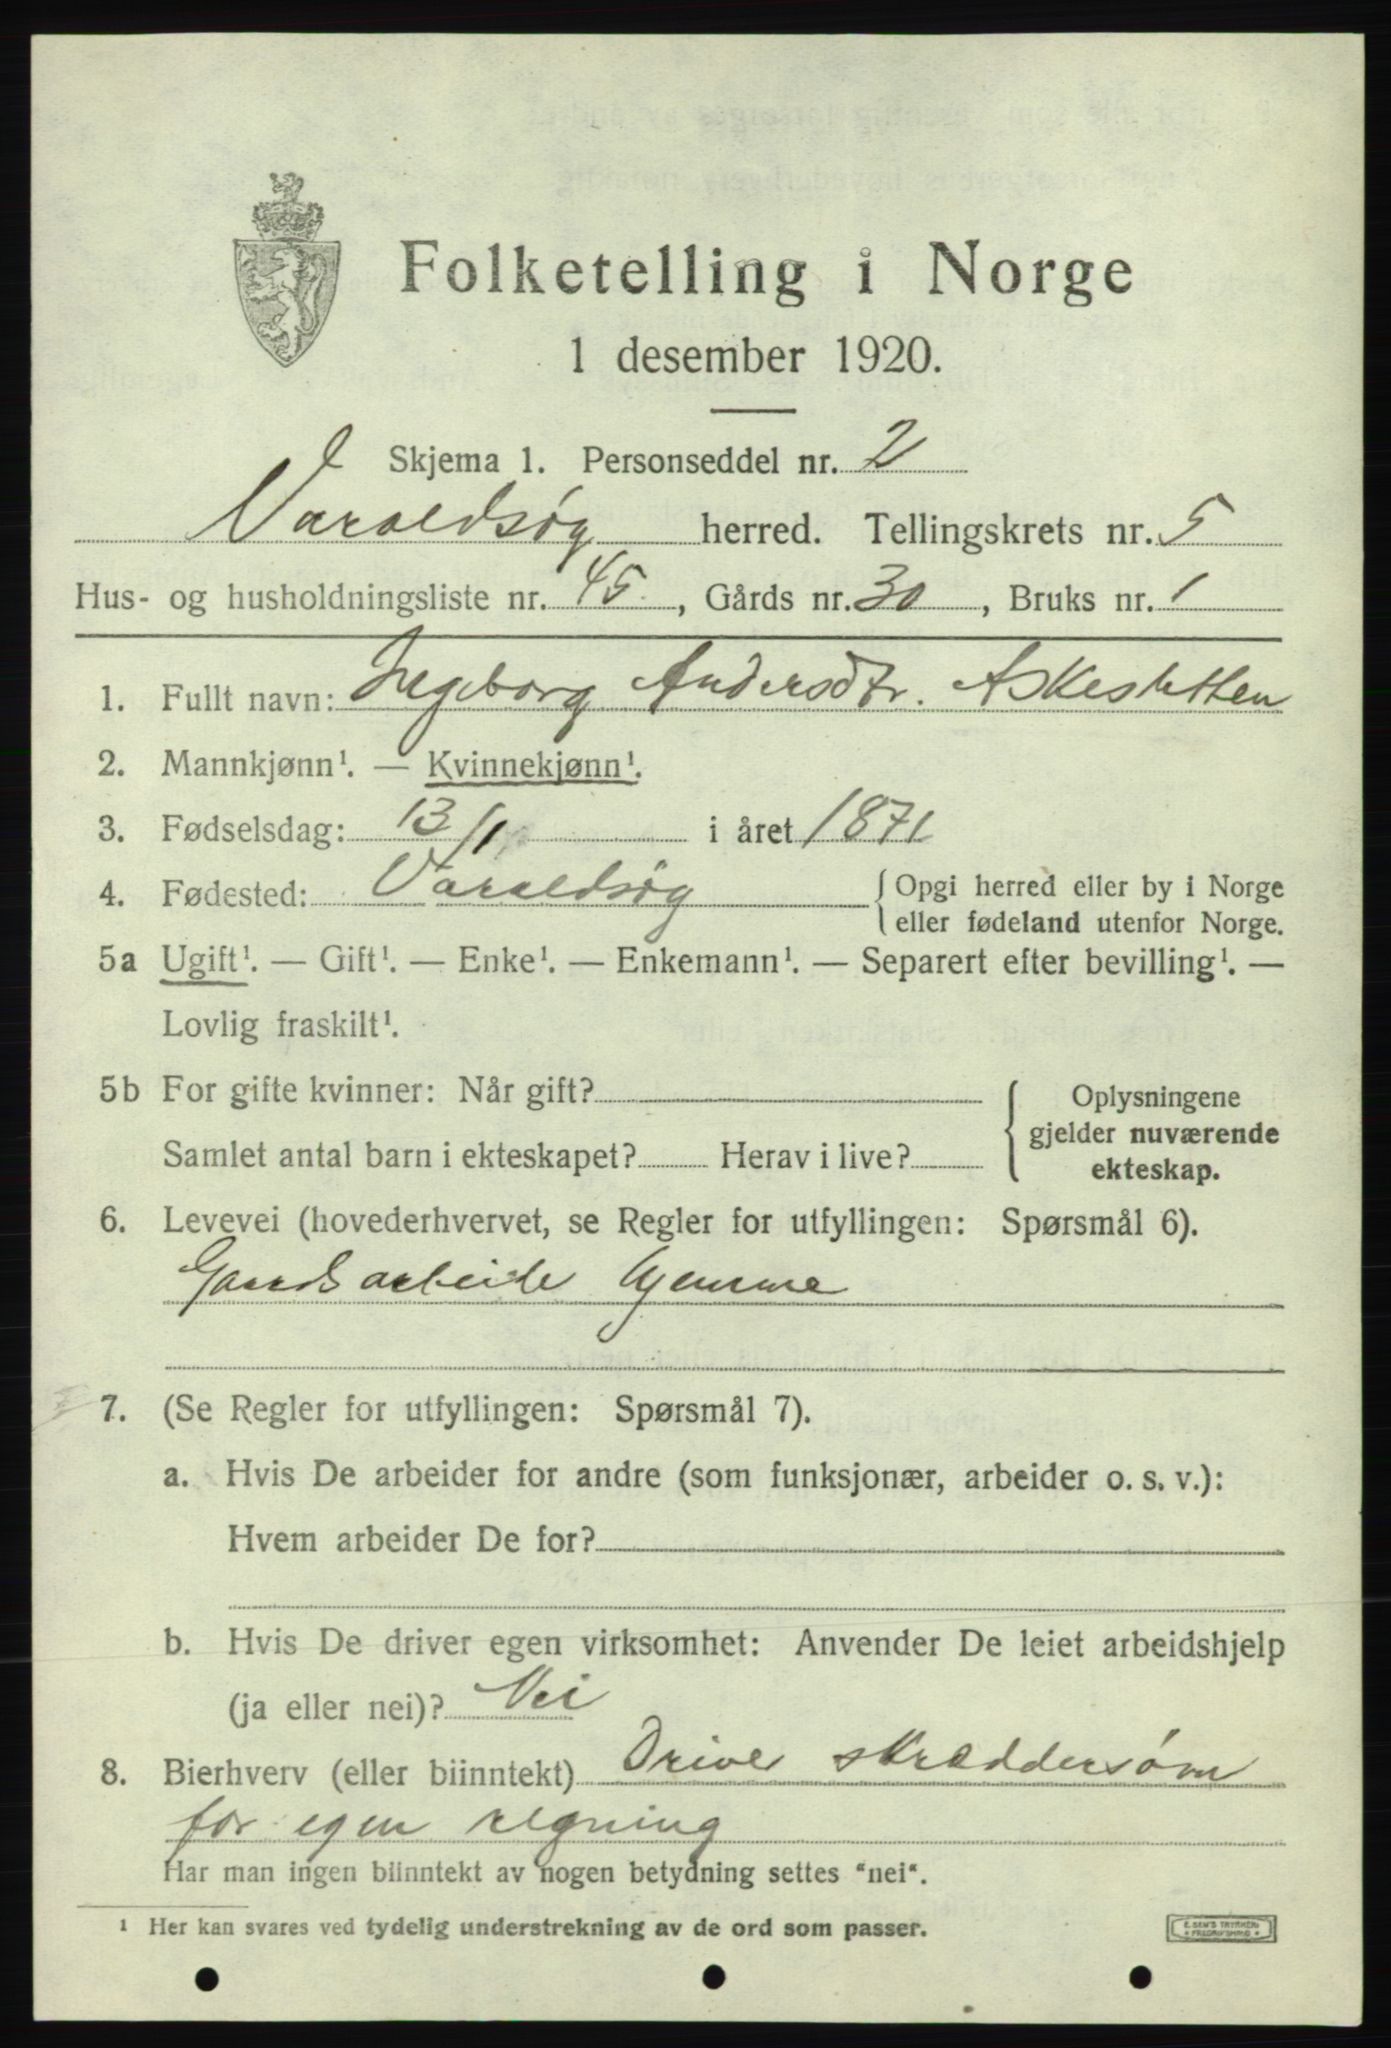 Folketelling i Norge
1 desember 1920.
Skjema 1. Personseddel nr. 2
Varaldsøy herred. Tellingskrets nr. 5
Hus- og husholdningsliste nr. 45, Gårds nr. 30, Bruks nr. 1
1. Fullt navn: Ingeborg Andersdtr. Askesletten
2. Mannkjønn¹. — Kvinnekjønn¹.
3. Fødselsdag: 13/1 i året 1871
4. Fødested: Varaldsøy { Opgi herred eller by i Norge
eller fødeland utenfor Norge.
5a Ugift¹. — Gift¹. — Enke¹. — Enkemann¹. — Separert efter bevilling¹. —
Lovlig fraskilt¹.
5b For gifte kvinner: Når gift?
Samlet antal barn i ekteskapet? Herav i live?
Oplysningene
gjelder nuværende
ekteskap.
6. Levevei (hovederhvervet, se Regler for utfyllingen: Spørsmål 6).
Gaardsarbeide hjemme
7. (Se Regler for utfyllingen: Spørsmål 7).
a. Hvis De arbeider for andre (som funksjonær, arbeider o. s. v.):
Hvem arbeider De for?
b. Hvis De driver egen virksomhet: Anvender De leiet arbeidshjelp
(ja eller nei)? Nei
8. Bierhverv (eller biinntekt) Driver skreddersøm
for egen regning
Har man ingen biinntekt av nogen betydning settes “nei“.
¹ Her kan svares ved tydelig understrekning av de ord som passer.
E. SEM'S TRYKKERI
FREDRIKSHALD